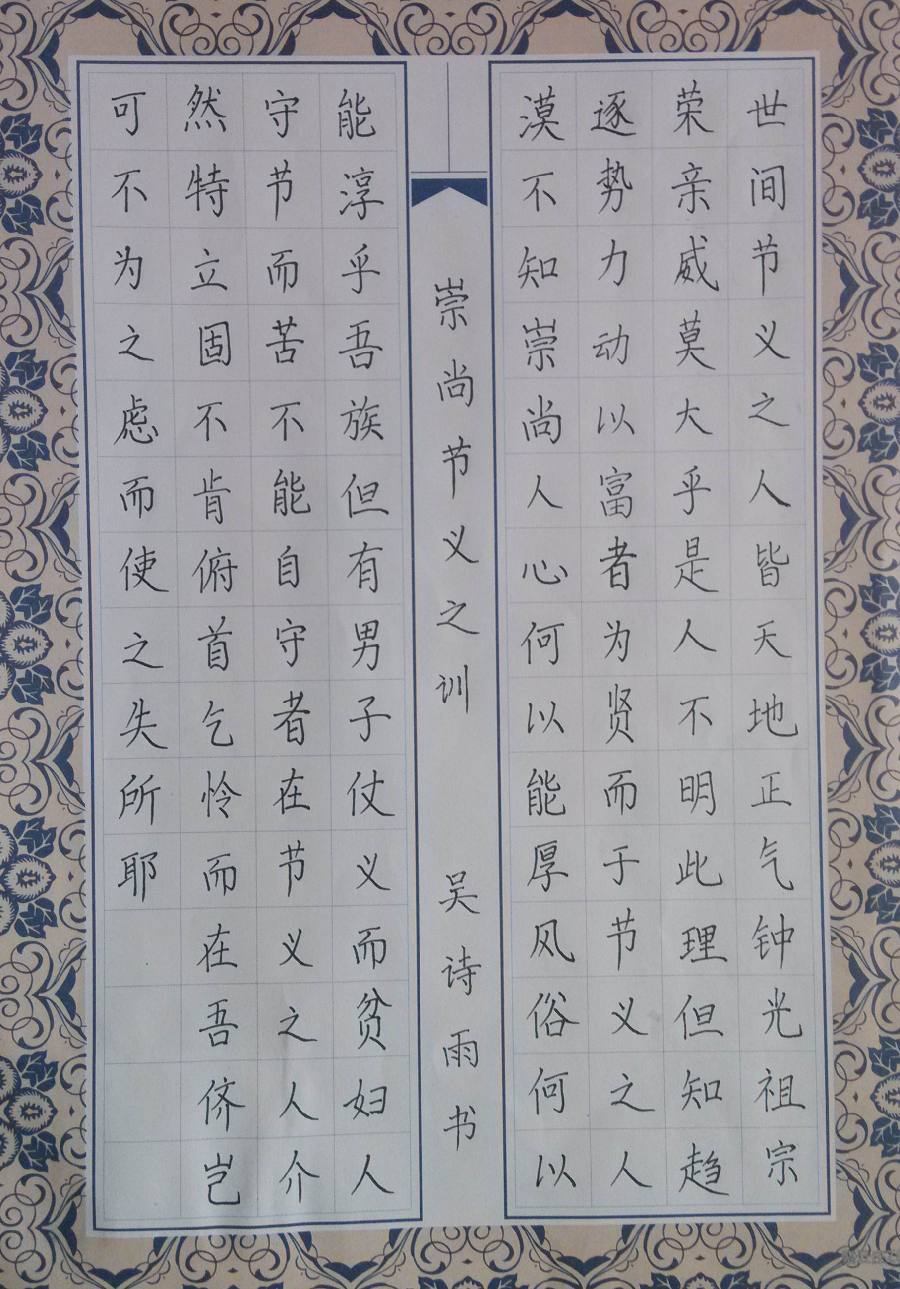 世间节义之人皆天地正气钟光祖宗
荣亲威莫大乎是人不明此理但知趋
逐势力动以富者为贤而于节义之人
漠不知崇尚人心何以能厚风俗何以
崇尚节义之训 吴诗雨书
能淳乎吾族但有男子仗义而贫妇人
守节而苦不能自守者在节义之人介
然特立固不肯俯首乞怜而在吾侪岂
可不为之虑而使之失所耶